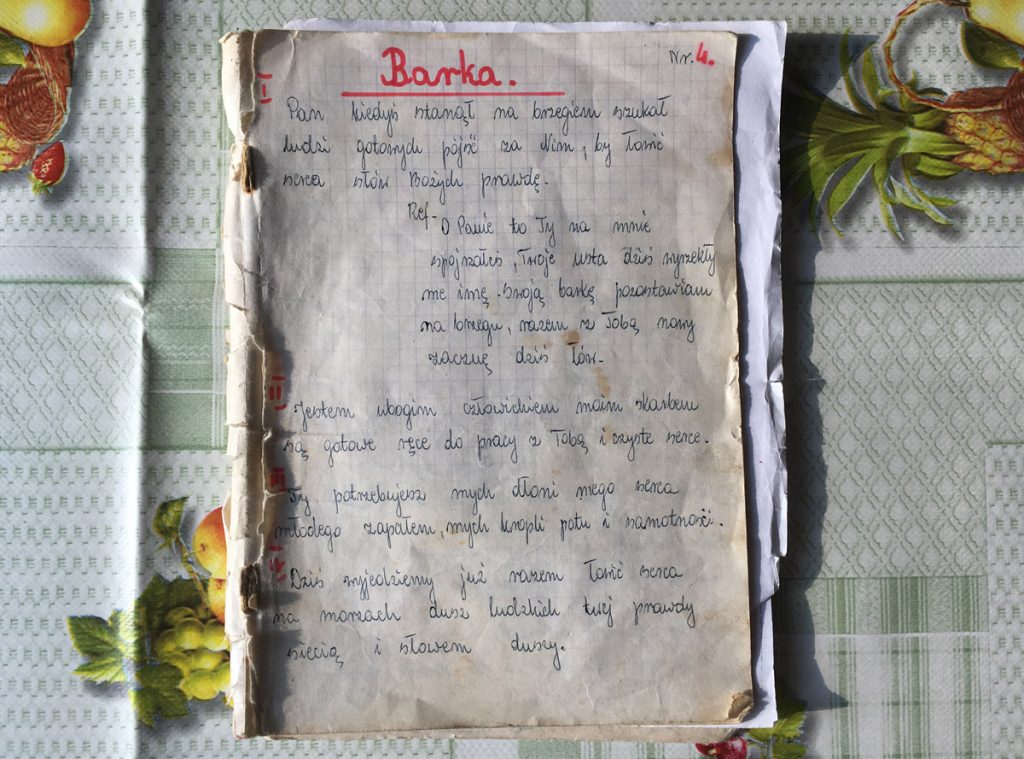 Barka.
Nr. 4.
I
Pan kiedyś stanął na brzegiem szukał
ludzi gotowych pójść za Nim, by łowić
serca słów Bożych prawdę.
Ref-
O Panie to Ty na mnie
spójrzałeś, Twoje usta dziś wyrzekły
me imę. Swoją barkę pozostawiam
na brzegu, razem z Tobą nowy
zacznę dziś łów.
II
Jestem ubogim człowiekiem moim skarbem
są gotowe ręce do pracy z Tobą i czyste serce.
III
Ty potrzebujesz mych dłoni mego serca
młodego zapałem, mych kropli potu i samotność.
IV
Dziś wyjedziemy już razem łowić serca
na morzach dusz ludzkich twej prawdy
siecią i słowem duszy.